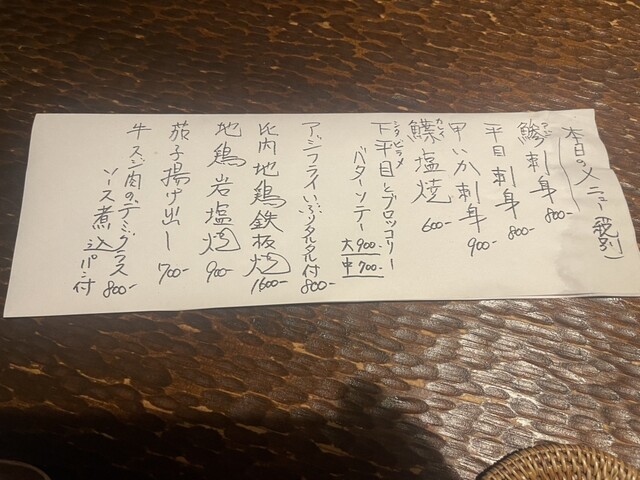 本日のメニュー(税別)
アジ
鯵刺身 800-
平目刺身 800-
甲いか刺身 900-
鰈塩焼 600-
シタビラメ
下平目とブロッコリー
バターソテー 大900- 中700-
アジフライいぶりタルタル付 800-
比内地鶏鉄板焼 1600-
地鶏岩塩焼 900-
茄子揚げ出し 700-
牛スジ肉のデミグラス
ソース煮込パン付 800-